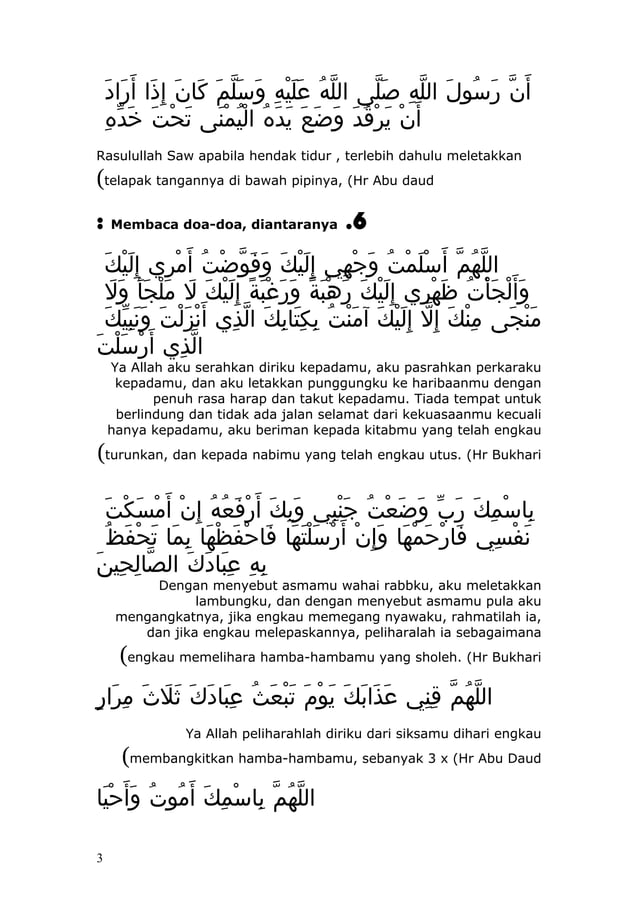 أَنَّ رَسُولَ اللَّهِ صَلَّى اللَّهُ عَلَيْهِ وَسَلَّمَ كَانَ إِذَا أَرَادَ
أَنْ يَرْقُدَ وَضَعَ يَدَهُ الْيُمْنَى تَحْتَ خَدِّهِ
Rasulullah Saw apabila hendak tidur , terlebih dahulu meletakkan
(telapak tangannya di bawah pipinya, (Hr Abu daud
: Membaca doa-doa, diantaranya .6
اللَّهُمَّ أَسْلَمْتُ وَجْهِي إِلَيْكَ وَفَوَّضْتُ أَمْرِي إِلَيْكَ
وَأَلْجَأْتُ ظَهْرِي إِلَيْكَ رَهْبَةً وَرَغْبَةً إِلَيْكَ لَا مَلْجَأَ وَلَا
مَنْجَى مِنْكَ إِلَّا إِلَيْكَ آمَنْتُ بِكِتَابِكَ الَّذِي أَنْزَلْتَ وَنَبِيِّكَ
الَّذِي أَرْسَلْتَ
Ya Allah aku serahkan diriku kepadamu, aku pasrahkan perkaraku
kepadamu, dan aku letakkan punggungku ke haribaanmu dengan
penuh rasa harap dan takut kepadamu. Tiada tempat untuk
berlindung dan tidak ada jalan selamat dari kekuasaanmu kecuali
hanya kepadamu, aku beriman kepada kitabmu yang telah engkau
(turunkan, dan kepada nabimu yang telah engkau utus. (Hr Bukhari
بِاسْمِكَ رَبِّ وَضَعْتُ جَنْبِي وَبِكَ أَرْفَعُهُ إِنْ أَمْسَكْتَ
نَفْسِي فَارْحَمْهَا وَإِنْ أَرْسَلْتَهَا فَاحْفَظْهَا بِمَا تَحْفَظُ
بِهِ عِبَادَكَ الصَّالِحِينَ
Dengan menyebut asmamu wahai rabbku, aku meletakkan
lambungku, dan dengan menyebut asmamu pula aku
mengangkatnya, jika engkau memegang nyawaku, rahmatilah ia,
dan jika engkau melepaskannya, peliharalah ia sebagaimana
(engkau memelihara hamba-hambamu yang sholeh. (Hr Bukhari
اللَّهُمَّ قِنِي عَذَابَكَ يَوْمَ تَبْعَثُ عِبَادَكَ ثَلَاثَ مِرَارٍ
Ya Allah peliharahlah diriku dari siksamu dihari engkau
(membangkitkan hamba-hambamu, sebanyak 3 x (Hr Abu Daud
اللَّهُمَّ بِاسْمِكَ أَمُوتُ وَأَحْيَا
3